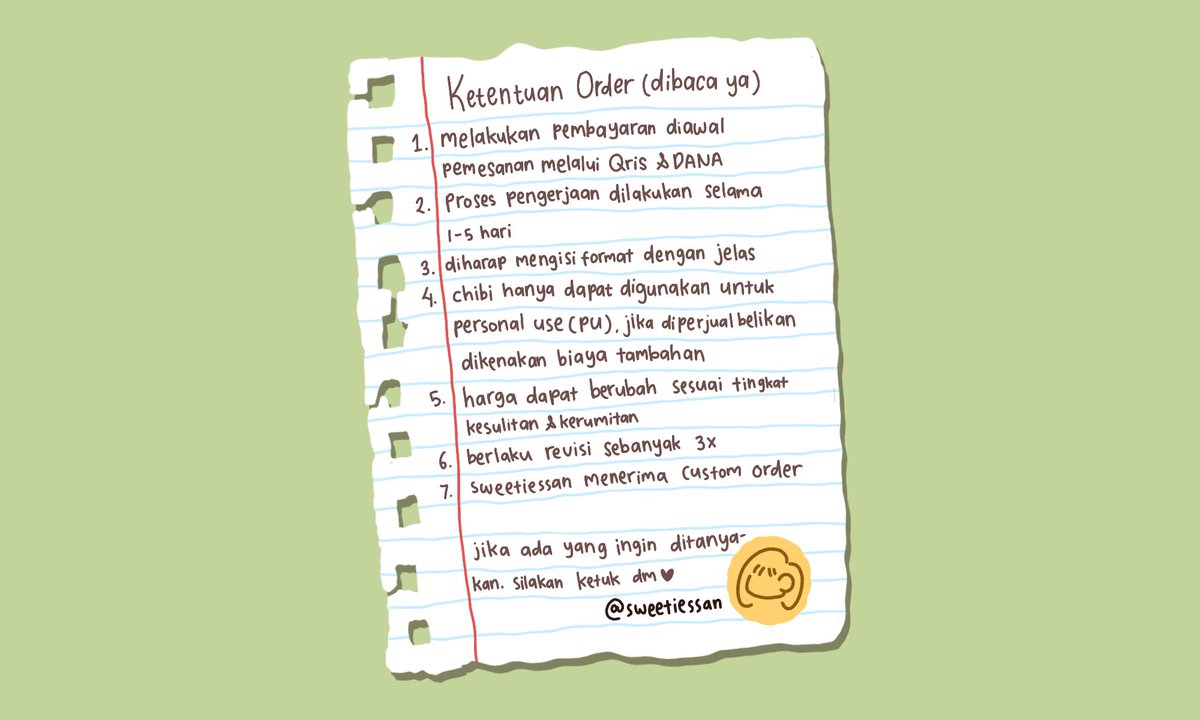 Ketentuan Order (dibaca ya)
1. melakukan pembayaran diawal
pemesanan melalui Qris & DANA
2. Proses pengerjaan dilakukan selama
1-5 hari
3. diharap mengisi format dengan jelas
4. chibi hanya dapat digunakan untuk
personal use (PU), jika diperjualbelikan
dikenakan biaya tambahan
5. harga dapat berubah sesuai tingkat
kesulitan & kerumitan
6. berlaku revisi sebanyak 3x
7. sweetiessan menerima custom order
jika ada yang ingin ditanya-
kan. silakan ketuk dm ♥
@sweetiessan